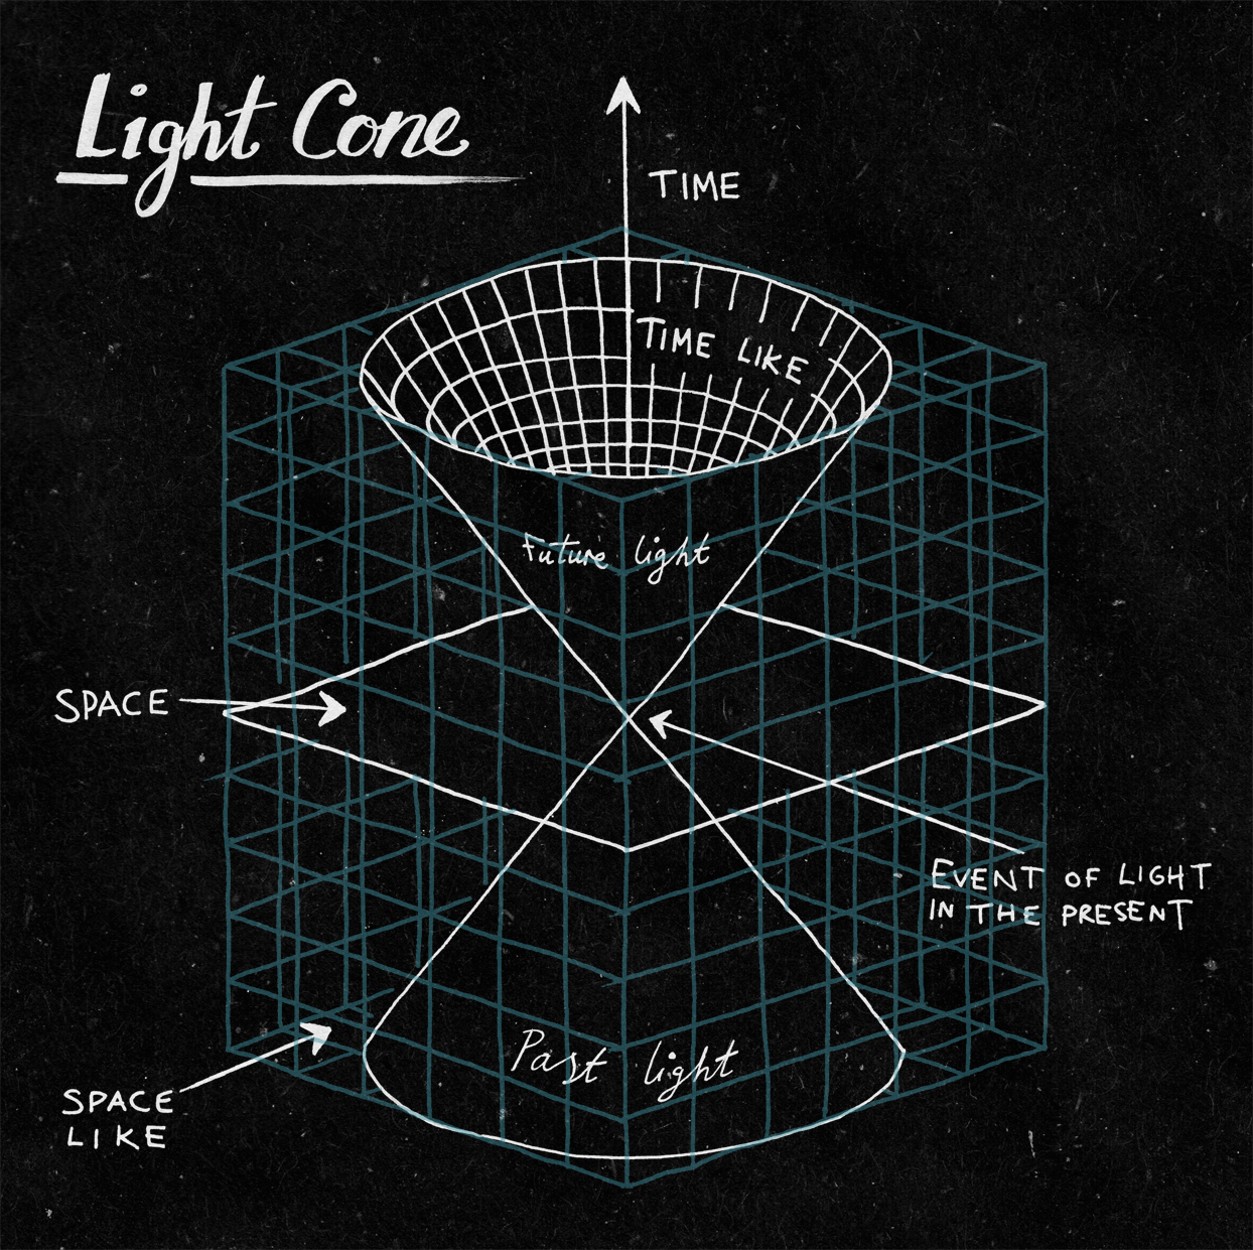 Light Cone
TIME
TIME LIKE
Future light
SPACE
EVENT OF LIGHT
IN THE PRESENT
Past light
SPACE
LIKE